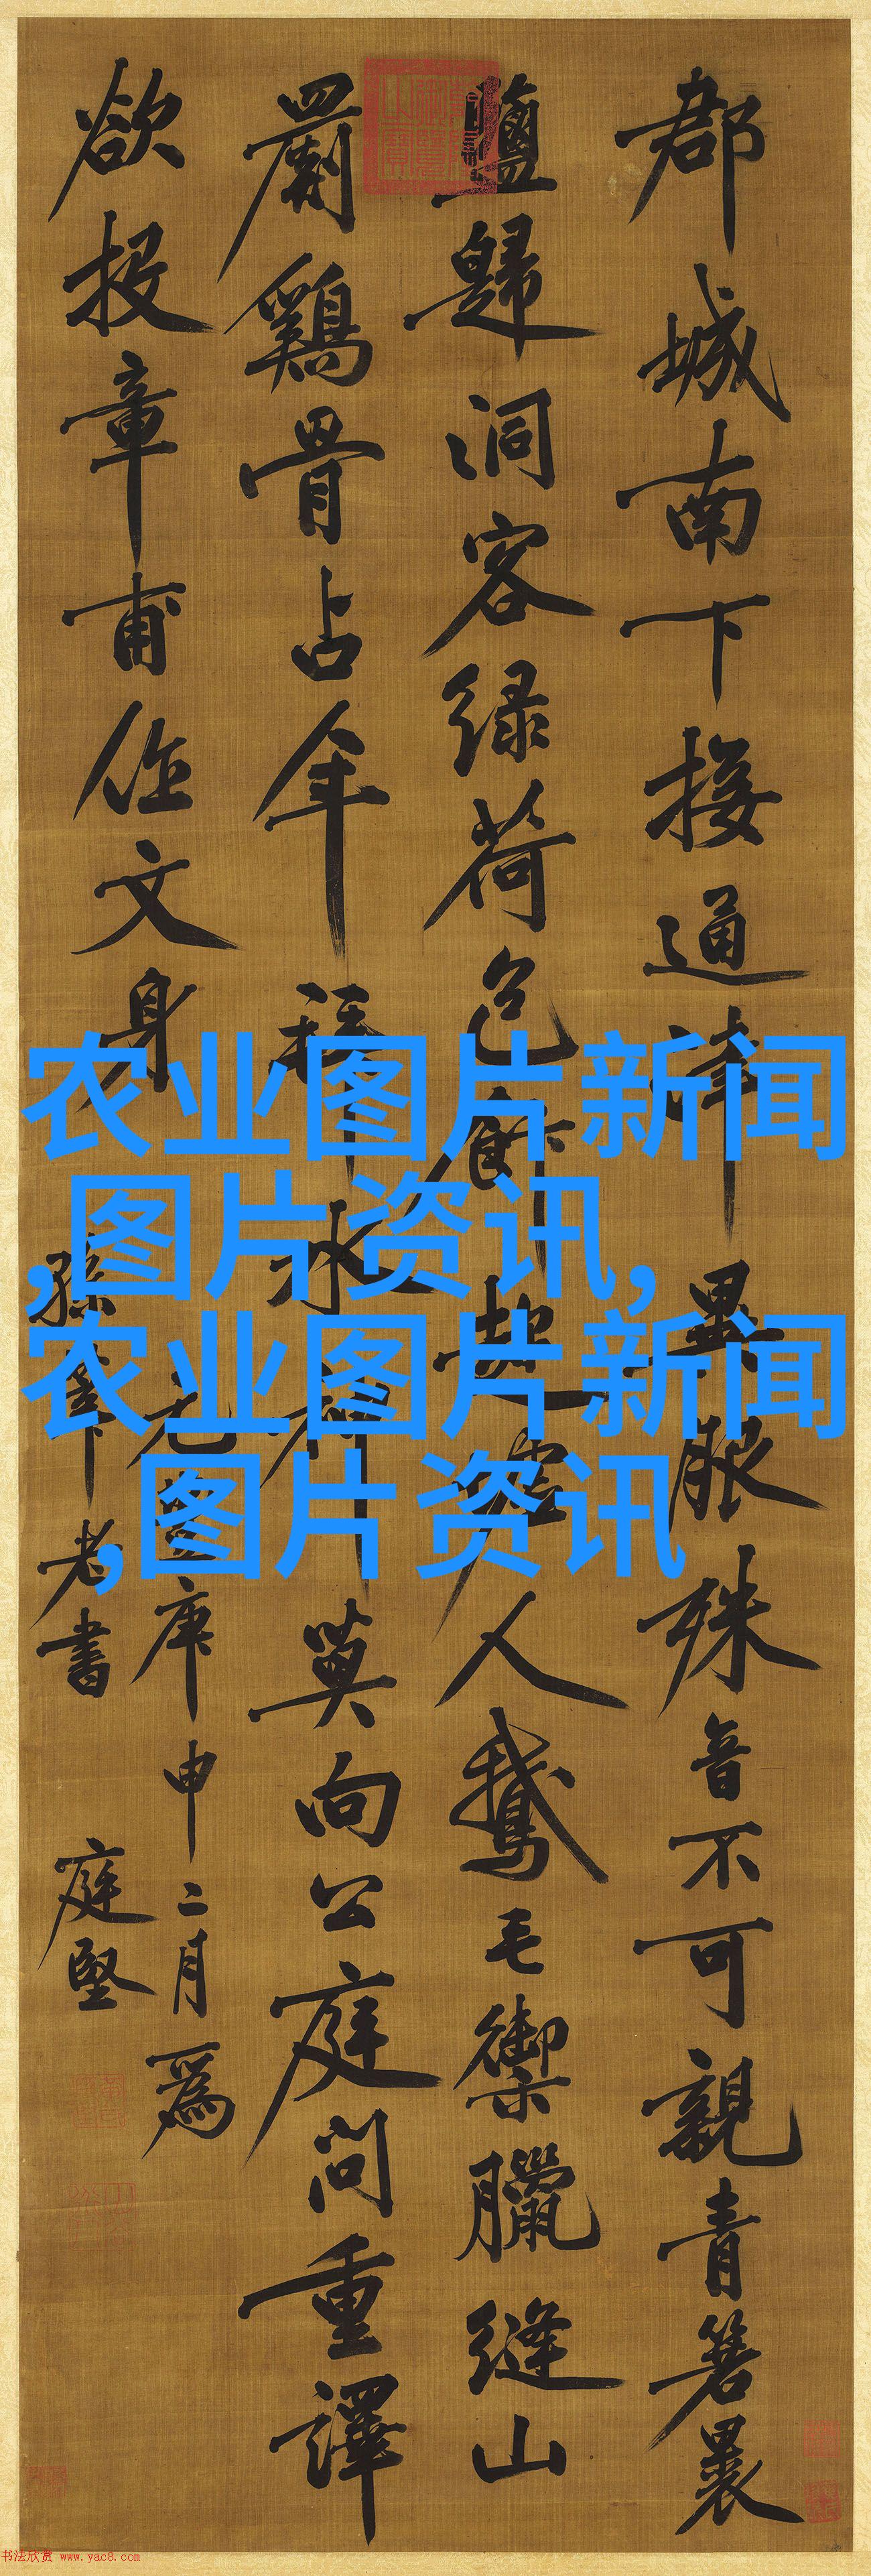 郡城南下接通津異服殊音不可親青箬裹
鹽歸洞客緑荷包飯趁虛人鵝毛禦臘縫山
罽鷄骨占年拜水神莫向公庭問重譯
欲投章甫作文身
元豐庚申二月爲
孫莘老書 庭堅
农业图片新闻
,图片资讯,
农业图片新闻
,图片资讯
书法欣赏 www.yac8.com